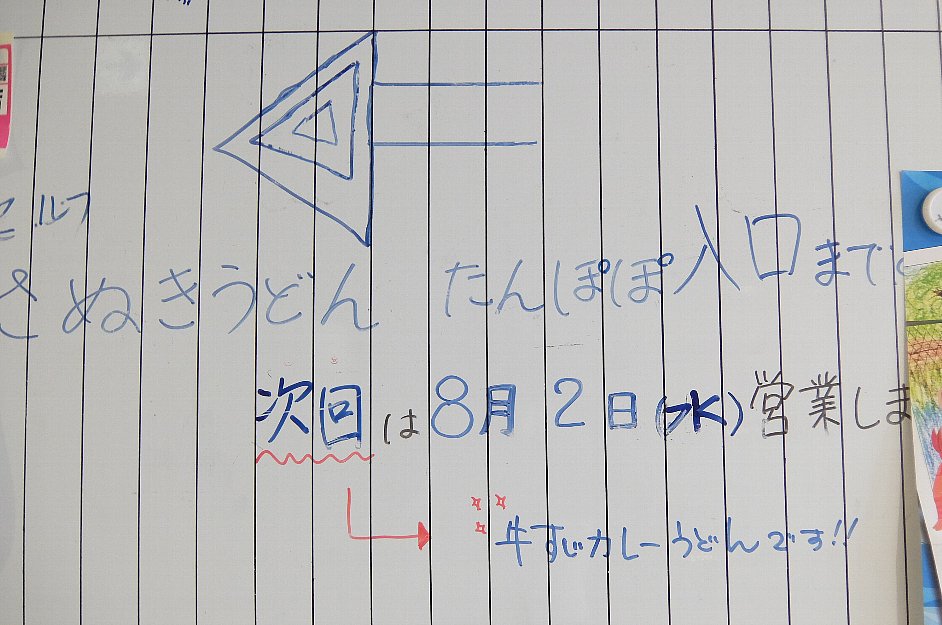 セルフ
さぬきうどん たんぽぽ入口まで
次回は8月2日(水)営業しま
牛すじカレーうどんです!!